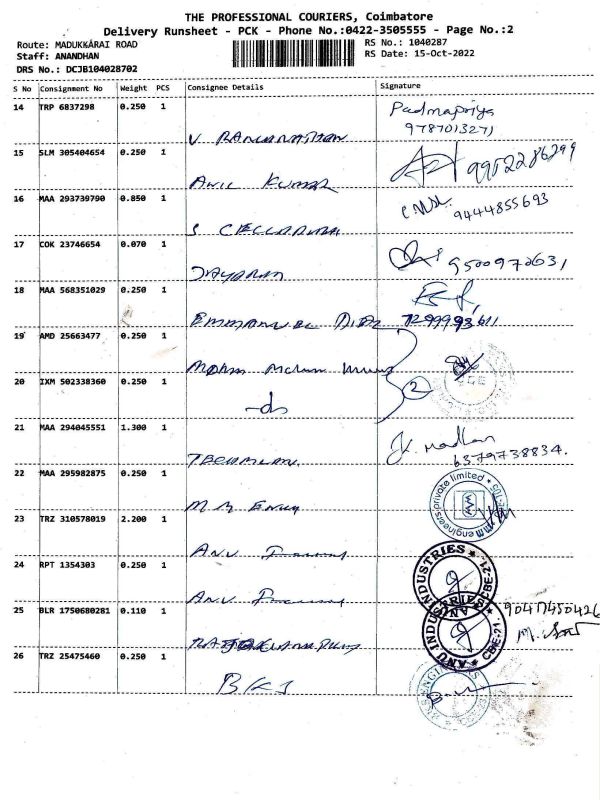 THE PROFESSIONAL COURIERS, Coimbatore
Delivery Runsheet - PCK - Phone No.:0422-3505555 - Page No.:2
Route: MADUKKARAI ROAD
RS No.: 1040287
Staff: ANANDHAN
RS Date: 15-Oct-2022
DRS No.: DCJB104028702
S No Consignment No Weight PCS Consignee Details Signature
14 TRP 6837298 0.250 1 Padmapriya
9787013271
V
15 SLM 305404654 0.250 1 9952286299
Anil Kumar
16 MAA 293739790 0.850 1 9444855693
S
17 COK 23746654 0.070 1 9500972631
Jayaram
18 MAA 568351029 0.250 1
Emmanuel 7299993611
19 AMD 25663477 0.250 1
20 IXM 502338360 0.250 1 2
-do
21 MAA 294045551 1.300 1 Madhan
6379738834.
22 MAA 295982875 0.250 1 engineers private limited
M M Engg
23 TRZ 310578019 2.200 1
Anu
24 RPT 1354303 0.250 1 ANU INDUSTRIES CBE-21.
Anu
25 BLR 1750680281 0.110 1 9047450426
ANU INDUSTRIES CBE-21.
26 TRZ 25475460 0.250 1
BKS